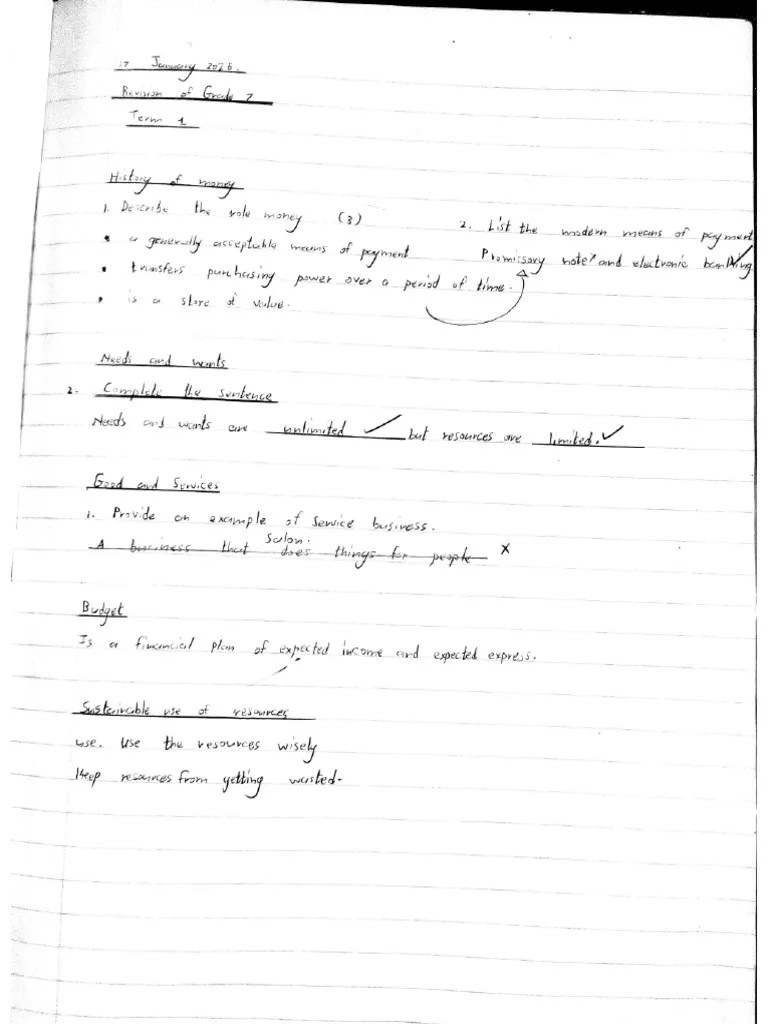 17 January 2026.
Revision of Grade 7
Term 1
History of money
1. Describe the role money (3)
• a generally acceptable means of payment
• transfers purchasing power over a period of time.
• is a store of value.
2. List the modern means of payment
Promissory note x and electronic banking ✓
Needs and wants
2. Complete the sentence
Needs and wants are unlimited ✓ but resources are limited. ✓
Good and Services
1. Provide an example of Service business.
Salon.
A business that does things for people x
Budget
Is a financial plan of expected income and expected express.
Sustainable use of resources
use. Use the resources wisely
Keep resources from getting wasted.